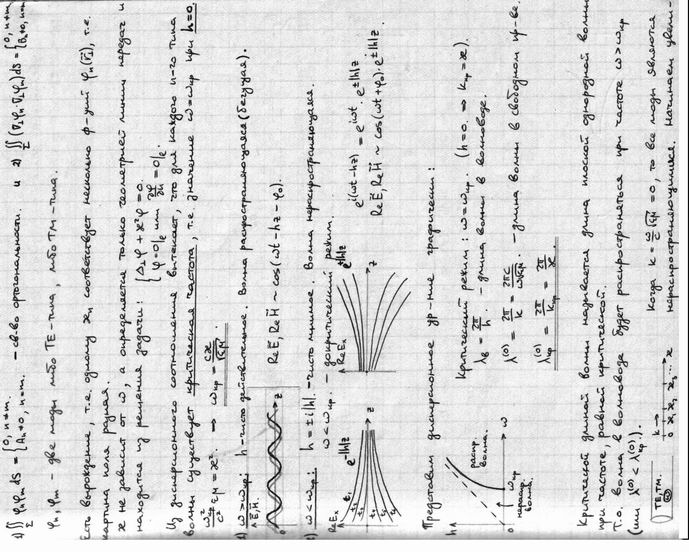 1) ∬_Σ φₙφₘ dS = {0, n≠m. Aₙ≠0, n=m. – св-во ортогональности. и 2) ∬_Σ (∇⊥φₙ ∇⊥φₘ) dS = {0, n≠m Bₙ≠0, n=m
φₙ, φₘ – две моды либо TE-типа, либо TM-типа.
Есть вырождение, т.е. одному æₙ соответствует несколько ф-ций φₙ(r⊥), т.е.
картина поля разная.
æ не зависит от ω, а определяется только геометрией линии передач и
находится из решения задачи: {Δ⊥φ + æ²φ = 0. φ=0|_ℓ или ∂φ/∂n = 0|_ℓ.
Из дисперсионного соотношения вытекает, что для каждого n-го типа
волны существует критическая частота, т.е. значение ω=ω_кр при h=0.
ω²_кр/c² εμ = æ² ⇒ ω_кр = cæ/√εμ
1) ω>ω_кр: h – чисто действительное. Волна распространяющаяся (бегущая).
E, H. 0 z
Re E, Re H ~ cos(ωt-hz-φ₀).
2) ω<ω_кр: h = ±i|h|. – чисто мнимое. Волна нераспространяющаяся.
ω<ω_кр – докритический режим.
Re Eₓ e^{-|h|z} z
Re Eₓ e^{|h|z} z
e^{i(ωt-hz)} = e^{iωt} · e^{±|h|z}
Re E, Re H ~ cos(ωt+φ₀)·e^{±|h|z}
Представим дисперсионное ур-ние графически:
h распр. волна. 0 ω_кр ω нераспр. волна.
Критический режим: ω=ω_кр. (h=0. ⇒ k_кр=æ).
λ_в = 2π/h – длина волны в волноводе.
λ⁽⁰⁾ = 2π/k = 2πc/ω√εμ. – длина волны в свободном пр-ве.
λ⁽⁰⁾_кр = 2π/k_кр = 2π/æ
Критической длиной волны называется длина плоской однородной волны
при частоте, равной критической.
Т.о. волна в волноводе будет распространяться при частоте ω>ω_кр
(или λ⁽⁰⁾<λ⁽⁰⁾_кр).
TE, TM. k → 0 æ₁ æ₂ æ₃ ... æ
Когда k = ω/c √εμ = 0, то все моды являются
нераспространяющимися. Начинаем увели-